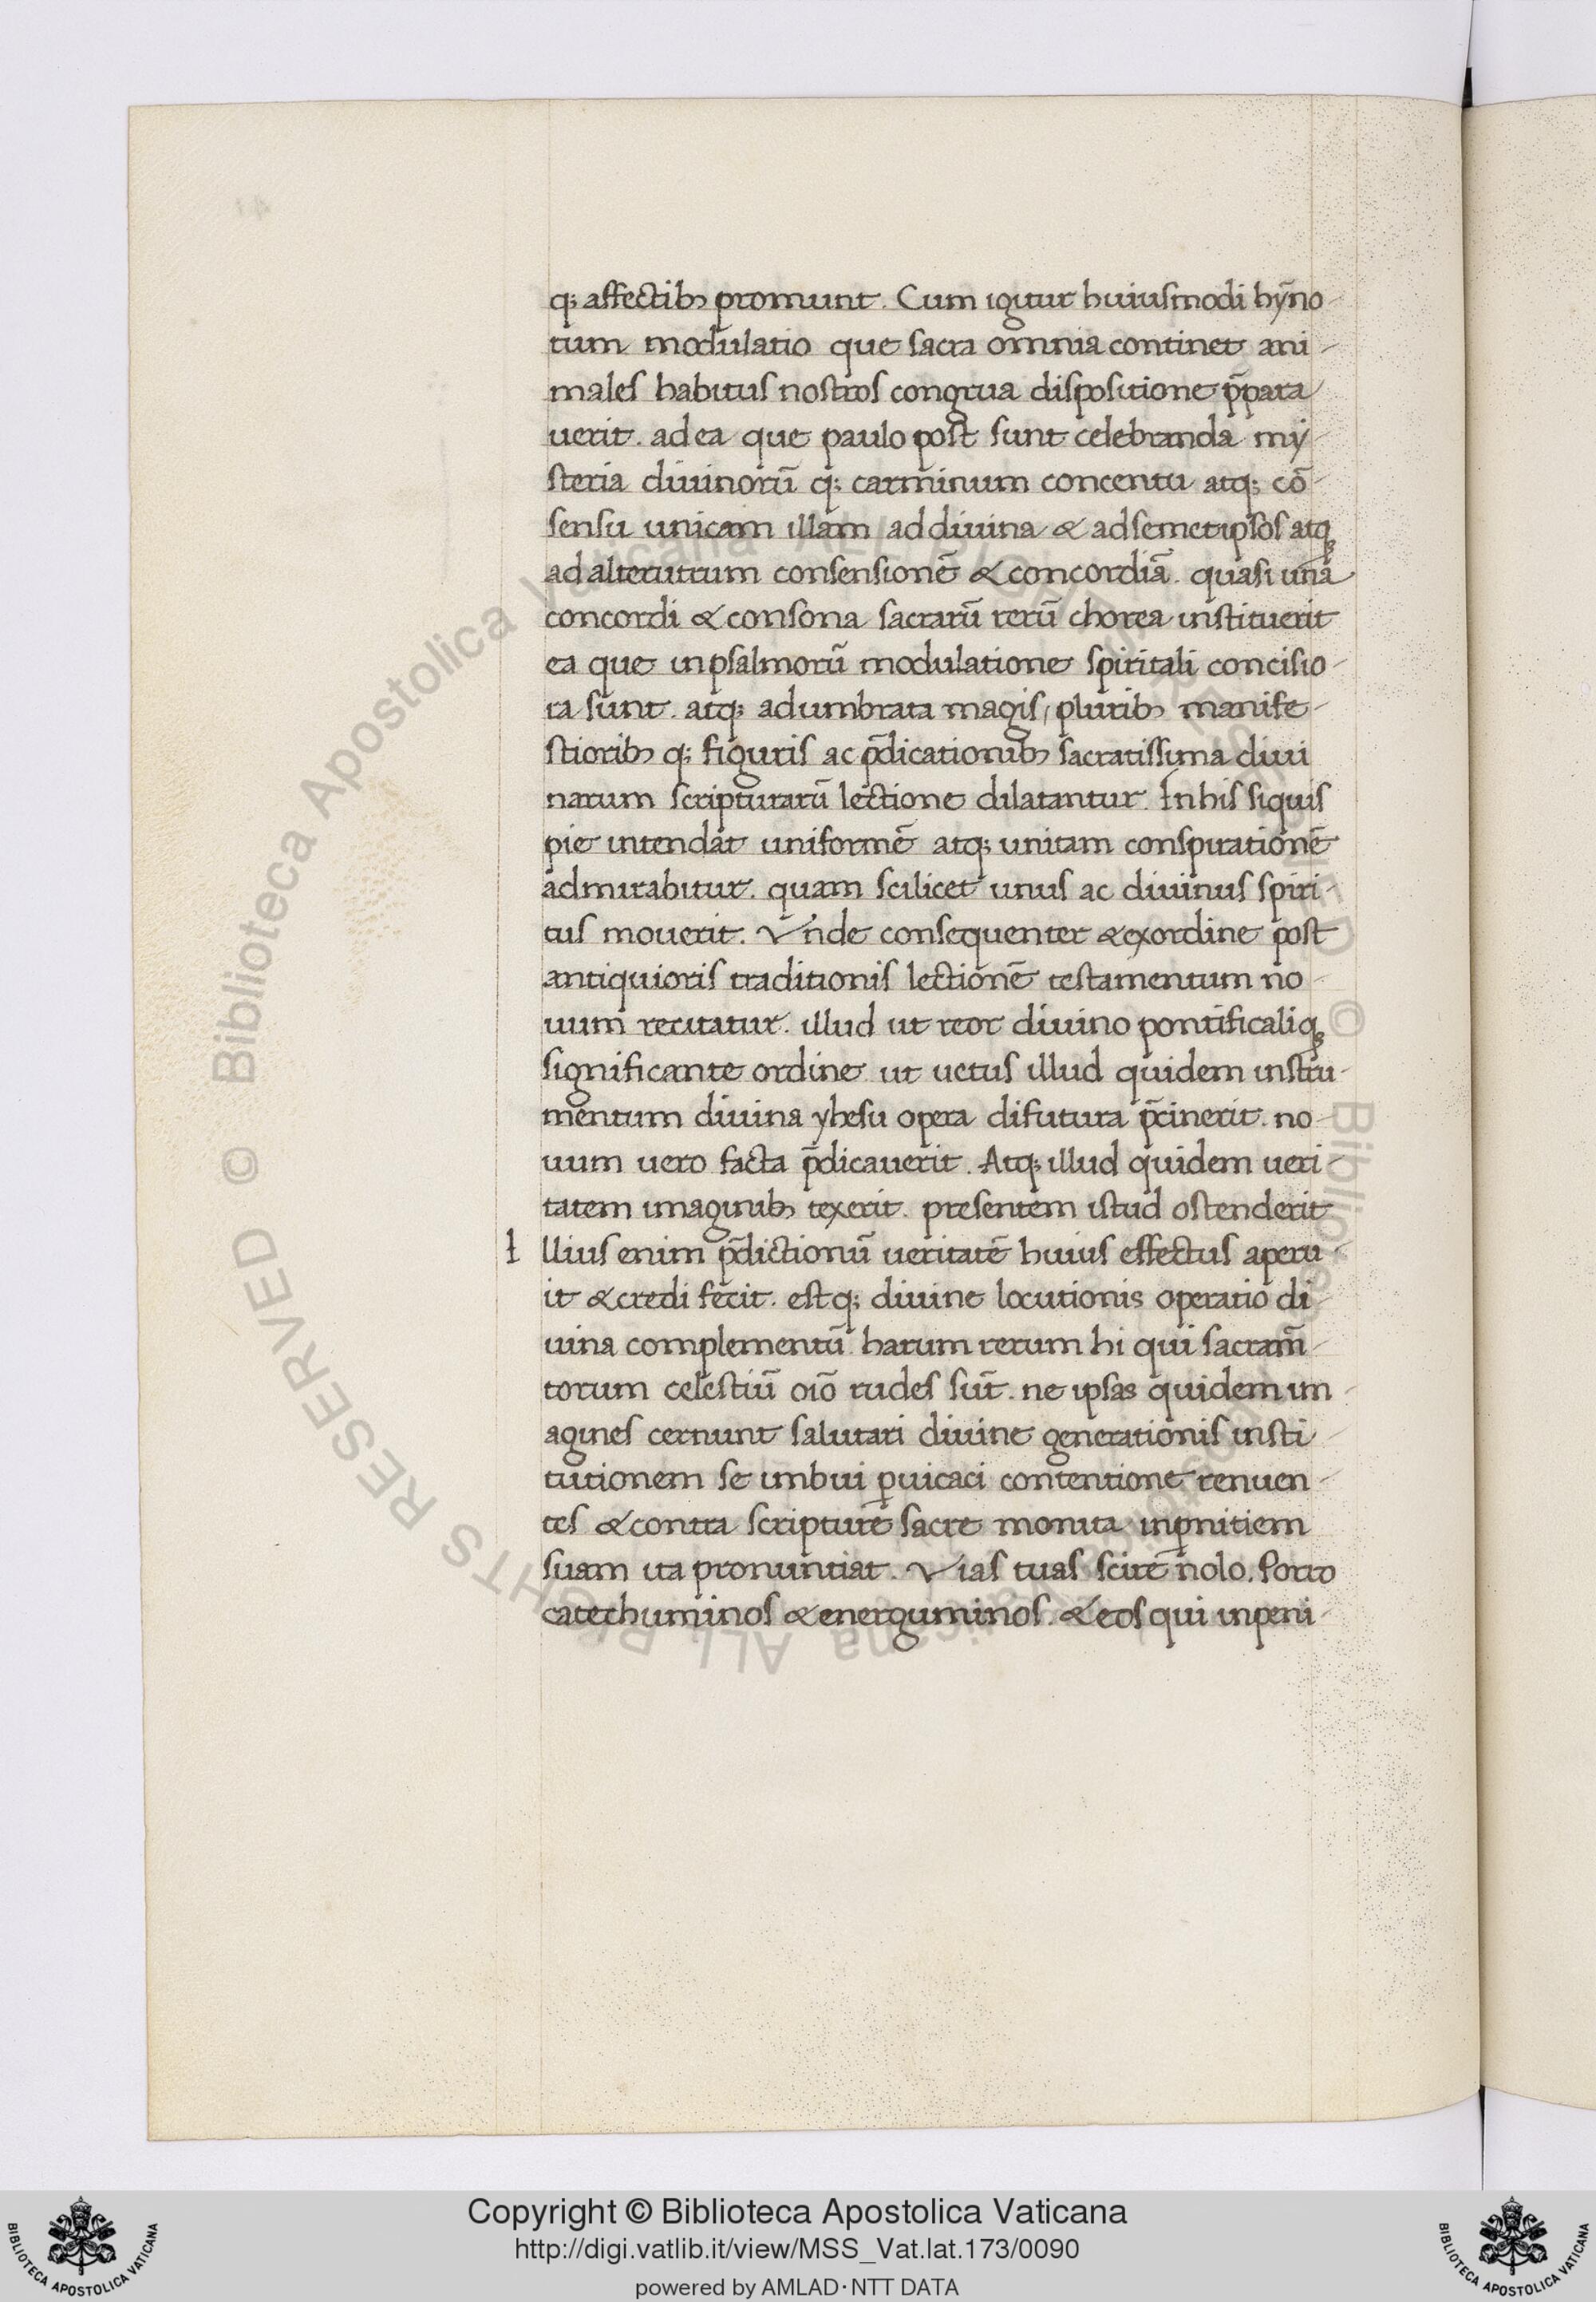 q; affectibꝫ promunt. Cum igitur huiusmodi hỹno-
rum modulatio que sacra omnia continet ani-
males habitus nostros congrua dispositione p̄para
uerit. ad ea que paulo post sunt celebranda my
steria diuinorū q; carminum concentu atq; cō
sensu unicam illam ad diuina & ad semetipsos atq;
ad alterutrum consensionē & concordiā. quasi unā
concordi & consona sacrarū rerū chorea instituerit
ea que in psalmorū modulatione spiritali concisio-
ra sunt. atq; adumbrata magis, pluribꝫ manife-
stioribꝫ q; figuris ac p̄dicationibꝫ sacratissima diui
narum scripturarū lectione dilatantur. In his siquis
pie intendat uniformē atq; unitam conspirationē
admirabitur. quam scilicet unus ac diuinus spiri-
tus mouerit. Vnde consequenter & exordine post
antiquioris traditionis lectionē testamentum no-
uum recitatur. illud ut reor diuino pontificaliq;
significante ordine ut uetus illud quidem instru-
mentum diuina yhesu opera difutura p̄cinerit. no-
uum uero facta p̄dicauerit. Atq; illud quidem ueri-
tatem imaginibꝫ texerit. presentem istud ostenderit
I llius enim p̄dictionū ueritatē huius effectus aperu-
it & credi fecit. estq; diuine locutionis operatio di
uina complementū. harum rerum hi qui sacram̄-
torum celestiū oīo rudes sūt. ne ipsas quidem im-
agines cernunt salutari diuine generationis insti
tutionem se imbui ꝑuicaci contentione renuen-
tes & contra scripture sacre monita inpnitiem
suam ita pronuntiat. Vias tuas scire n̄olo. Porro
catechuminos & energuminos. & eos qui inpeni-
Copyright © Biblioteca Apostolica Vaticana
http://digi.vatlib.it/view/MSS_Vat.lat.173/0090
powered by AMLAD·NTT DATA
BIBLIOTECA APOSTOLICA VATICANA
BIBLIOTECA APOSTOLICA VATICANA
© Biblioteca Apostolica Vaticana ALL RIGHTS RESERVED © Biblioteca Apostolica Vaticana ALL RIGHTS RESERVED